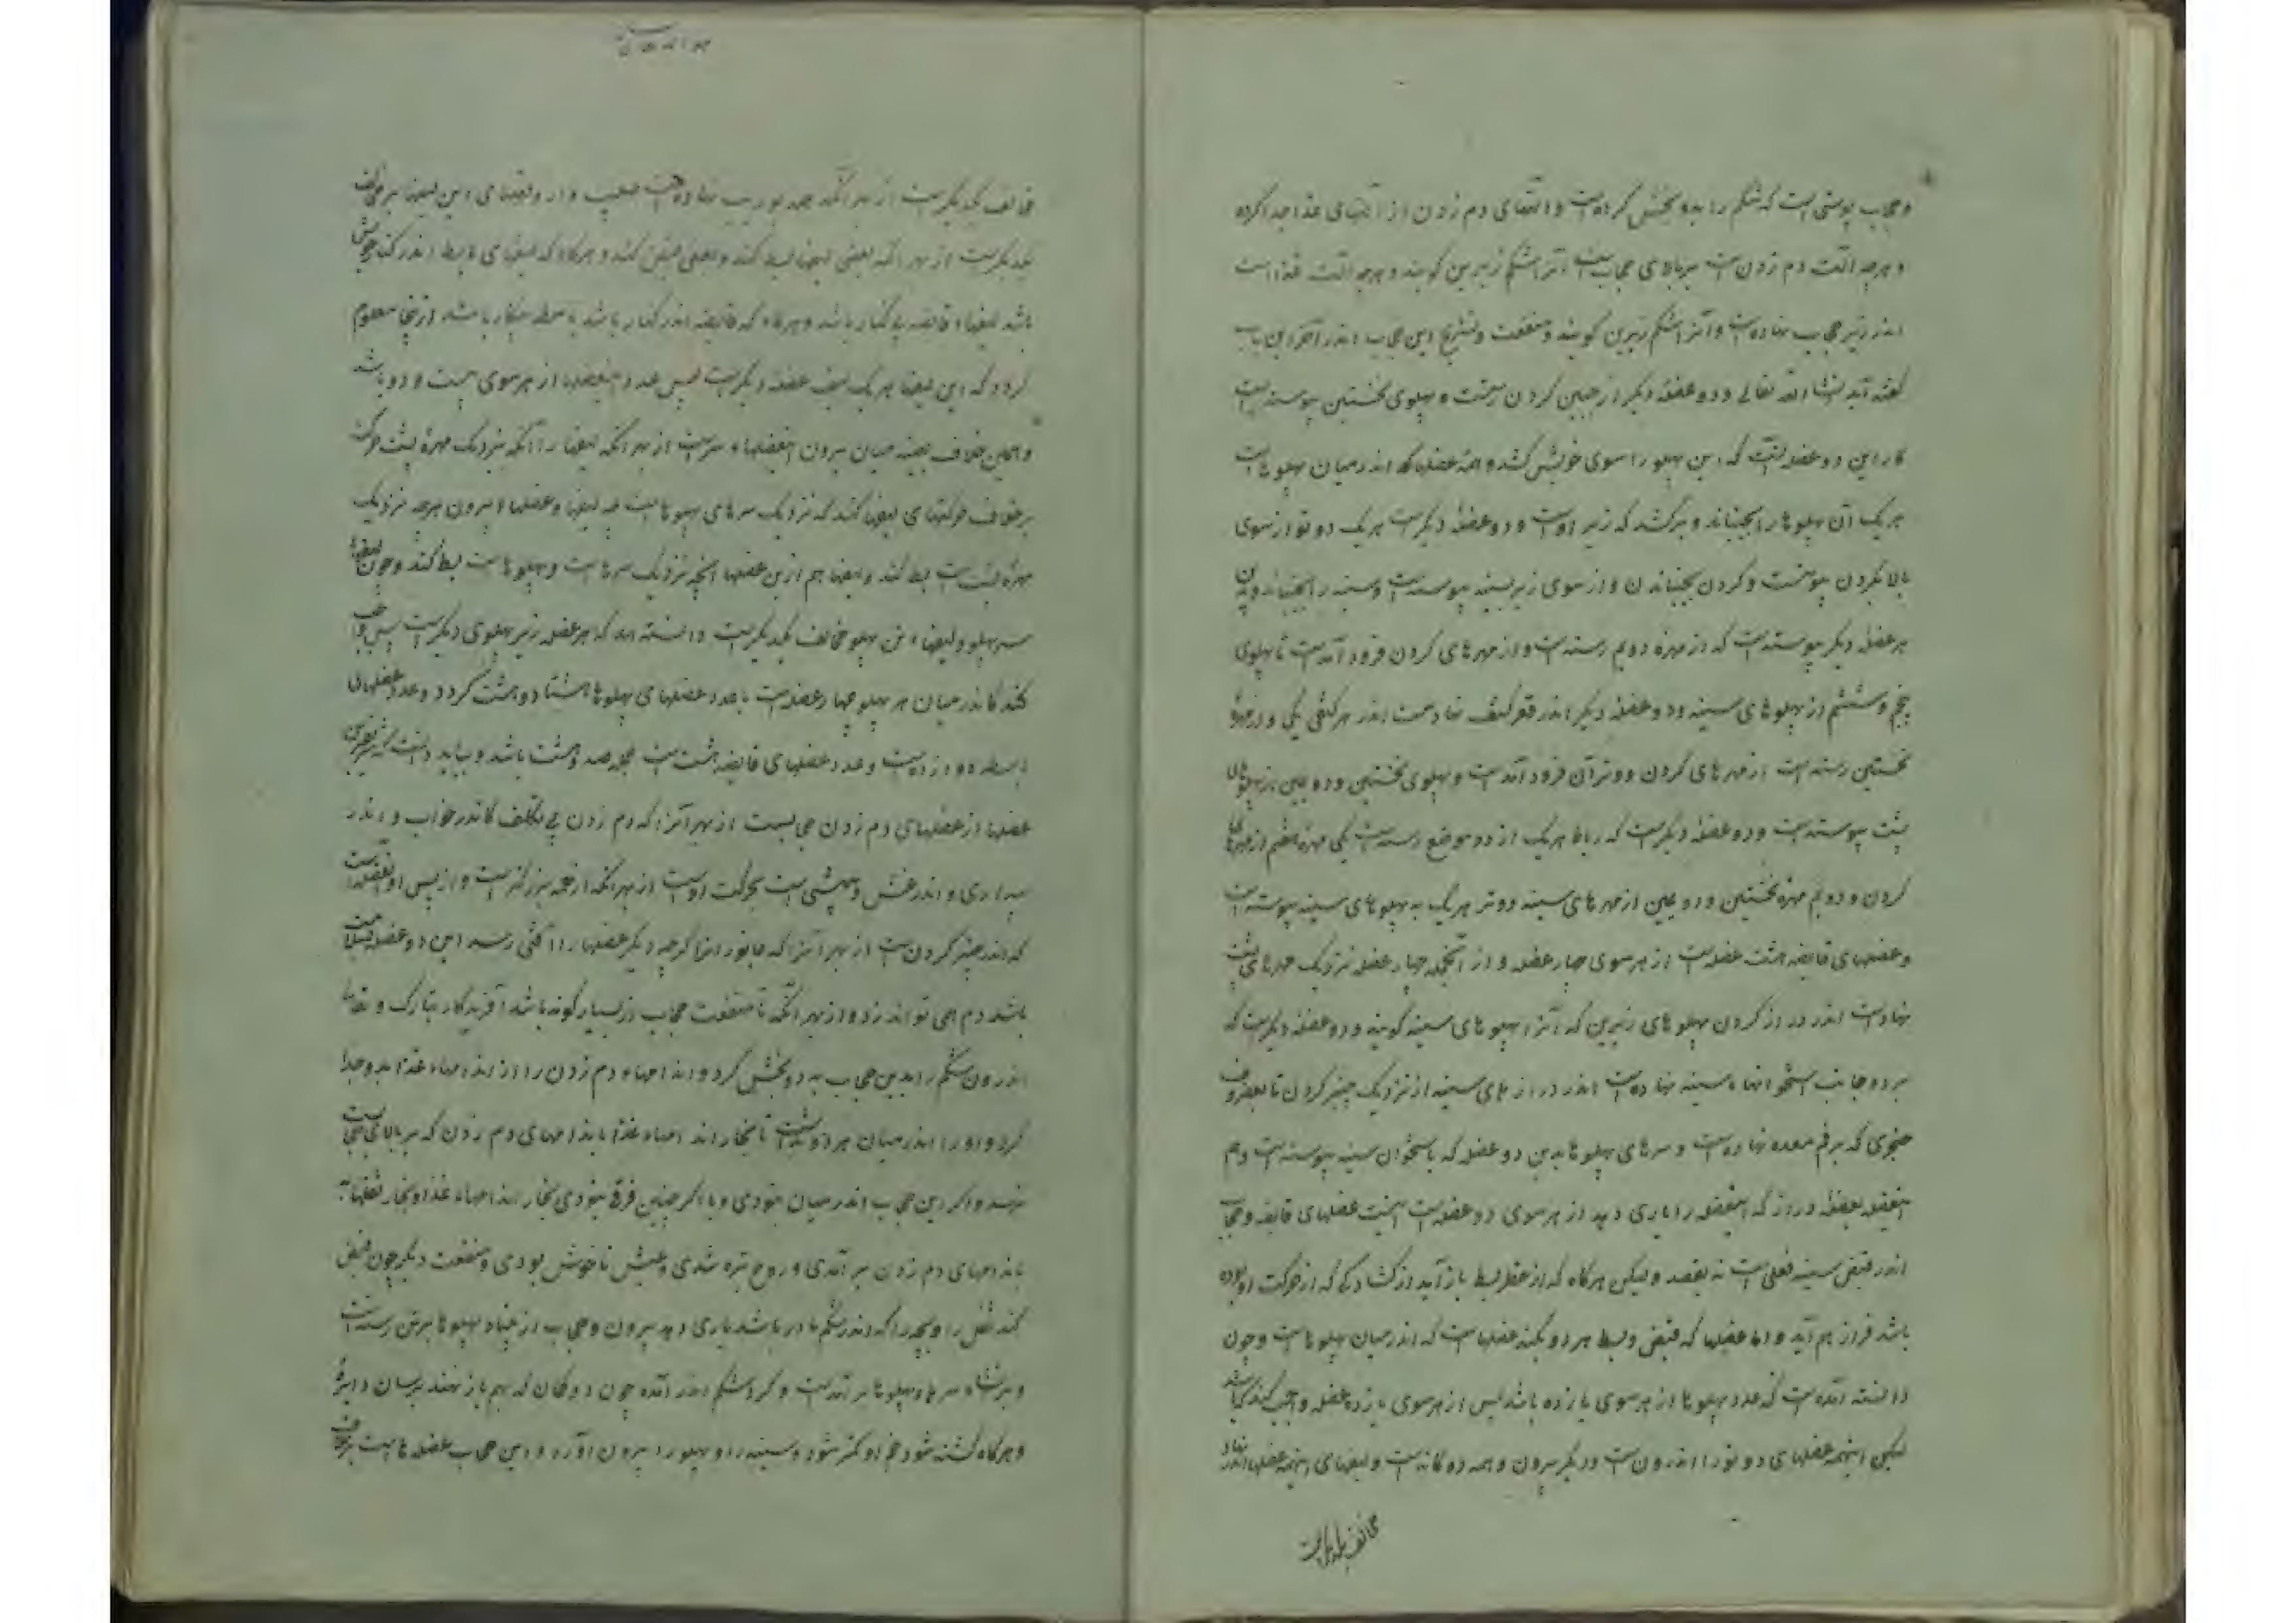 و حجاب پوستی است که شکم را بدو بخش کرده است و آلتهای دم زدن از آلتهای غذا جدا کرده
و هرچه آلت دم زدن است بر بالای حجاب است آنرا شکم زبرین گویند و هرچه آلت غذا است
اندر زیر حجاب نهاده است و آنرا شکم زیرین گویند و منفعت و تشریح این حجاب اندر آخر این باب
گفته آید انشاء الله تعالی و دو عضله دیگر از چنبر کردن رسته است و پهلوی نخستین پیوسته است
کار این دو عضله آنست که این پهلو را سوی خویش کشد و همه عضلها که اندر میان پهلوها است
هر یک آن پهلو را بجنباند و برکشد که زیر اوست و دو عضله دیگر است هر یک دو تو از سوی
بالا بگردن پیوسته است و گردن بجنباندن و از سوی زیر بسینه پیوسته است و سینه را بجنباند و بدین
هر عضله دیگر پیوسته است که از مهره دویم رسته است و از مهرهای گردن فرود آمده است تا پهلوی
پنجم و ششم از پهلوهای سینه و دو عضله دیگر اندر قعر کتف نهاد است اندر هر کتفی یکی و از مهرهٔ
نخستین رسته است از مهرهای گردن و فروتر آن فرود آمده است و پهلوی نخستین و دومین از پهلوهای
پشت پیوسته است و دو عضله دیگر است که رباط هر یک از دو موضع رسته است یکی مهره هفتم از مهرهای
گردن و دویم مهره نخستین و دومین از مهرهای سینه و دو سر هر یک به پهلوهای سینه پیوسته است
و عضلهای قابضه هشت عضله است از هر سوی چهار عضله و از آنجمله چهار عضله نزدیک مهرهای پشت
نهاد است اندر دراز کردن پهلوهای زیرین که آنرا پهلوهای سینه گویند و دو عضله دیگر است که
بر دو جانب استخوانهاء سینه نهاده است اندر درازنای سینه از نزدیک چنبر کردن تا بغضروف
خنجری که بر فم معده نهاده است و سرهای پهلوها بدین دو عضله که باستخوان سینه پیوسته است و هم
بعضله دراز که این عضل را یاری دهد از هر سوی دو عضله است هشت عضلهای قابضه و حجاب
اندر قبض سینه فعلی است نه بقصد ولیکن هرگاه که از عضل بسط باز آید از گشادگی که از حرکت او بوده
باشد فراز هم آید و اما عضلها که قبض و بسط هر دو بکنند عضلها است که اندر میان پهلوها است و چون
دانسته آمده است که عدد پهلوها از هر سوی یازده باشد پس از هر سوی یازده عضله واجب کند که باشد
لیکن اینهمه عضلهای دو تو را اندرون است و دیگر بیرون و همه دوگانه است و لیفهای اینهمه عضلها اندر نهاد
مخالف یکدیگر است
مخالف یکدیگر است از بهر آنکه همه بوریب نهاده است صلیب وار و لیفهای این لیفها بر خلاف
یکدیگر است از بهر آنکه بعضی لیفها بسط کند و بعضی قبض کند و هرگاه که لیفهای باسط اندر کار خویش
باشد لیفهاء قابضه بی کار باشد و هرگاه که قابضه اندر کار باشد باسط بیکار باشد از اینجا معلوم
گردد که این لیفها هر یک لیف عضله دیگر است پس عدد این عضله از هر سوی بیست و دو باشد
و همچنین خلاف بعینه میان بیرون این عضلهاء سر است از بهر آنکه لیفها را آنکه نزدیک مهرهٔ پشت حرکت
بر خلاف حرکتهای لیفها کند که نزدیک سرهای پهلوها است چه لیفها و عضلهاء بیرون هرچه نزدیک
مهره پشت است بسط کند و لیفها هم از این عضلها آنچه نزدیک سرها است و پهلوها است بسط کند و چون لیفهاء
سر پهلو و لیفهاء بن پهلو مخالف یکدیگر است دانسته آمد که هر عضله زیر پهلوی دیگر است پس واجب
کند کاندر میان هر پهلو چهار عضله است با عدد عضلهای پهلوها هشتاد و هشت گردد و عدد عضلهای
باسطه دوازده است و عدد عضلهای قابضه هشت است جمله صد و هشت باشد و بباید دانست که شریفترین
عضلها از عضلهای دم زدن حجابست از بهر آنرا که دم زدن بی تکلف کاندر خواب و اندر
بیداری و اندر غش و بیهشی است بحرکت اوست از بهر آنکه از همه بزرگتر است و از پس او آن عضلها است
که اندر چنبر کردن است از بهر آنرا که جانور را گرچه دیگر عضلها را آفتی رسد این دو عضله بسلامت
باشد دم همی تواند زد و از بهر آنکه تا منفعت حجاب از بسیار گونه باشد آفریدگار تبارک و تعالی
اندرون شکم را بدین حجاب به دو بخش کرد و اندامهاء دم زدن را از اندامهاء غذا بدو جدا
کرد و او را اندر میان هر دو بداشت تا بخار اندامهاء غذا باندامهای دم زدن که بر بالای حجابست
نرسد و اگر این حجاب اندر میان نبودی و یا اگر چنین فرق نبودی بخار اندامهاء غذا و بخار ثفلها
باندامهای دم زدن بر آمدی و روح تیره شدی و عیش ناخوش بودی و منفعت دیگر چون قبض
کند ثفل را و بچه را که اندر شکم مادر باشد یاری دهد بیرون و حجاب از میان پهلوها برتن رسته است
و سر پهلوها برآمده است و گرد شکم اندر آمده چون دو کمان که بهم باز نهند بر سان دایرهٔ
و هرگاه کشته شود خم او کمتر شود و سینه را و پهلو را بیرون آورد و این حجاب عضله هاست بر خلاف